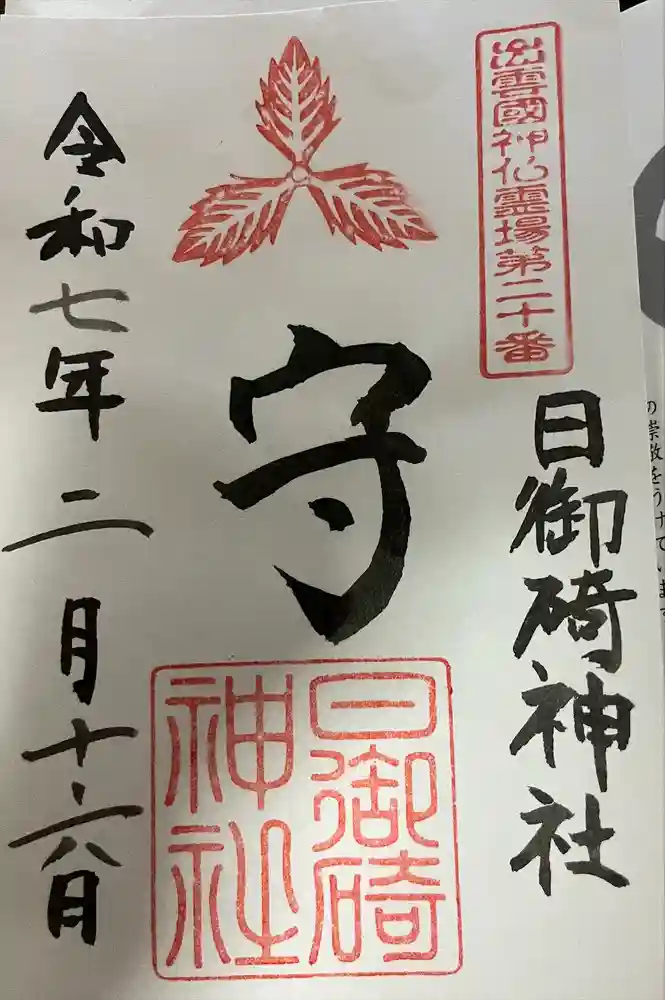 出雲國神仏霊場第二十番
日御碕神社
守
日御碕
神社
令和七年二月十六日
の崇敬をうけています